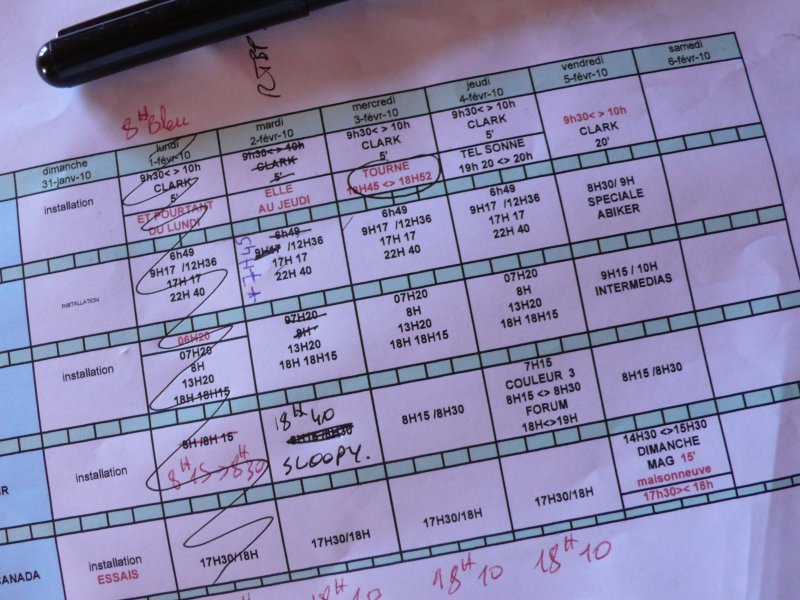 RTBF
8H Bleu
dimanche
31-janv-10
lundi
1-févr-10
mardi
2-févr-10
mercredi
3-févr-10
jeudi
4-févr-10
vendredi
5-févr-10
samedi
6-févr-10
installation
9h30< > 10h
CLARK
5'
ET POURTANT
DU LUNDI
9h30< > 10h
CLARK
5'
ELLE
AU JEUDI
9h30< > 10h
CLARK
5'
TOURNE
18H45 <> 18H52
9h30< > 10h
CLARK
5'
TEL SONNE
19h 20 <> 20h
9h30<> 10h
CLARK
20'
INSTALLATION
6h49
9H17 /12H36
17H 17
22H 40
6h49
9H17 /12H36
17H 17
22H 40
6h49
9H17 /12H36
17H 17
22H 40
6h49
9H17 /12H36
17H 17
22H 40
8H30/ 9H
SPECIALE
ABIKER
installation
06H20
07H20
8H
13H20
18H 18H15
07H20
8H
13H20
18H 18H15
07H20
8H
13H20
18H 18H15
07H20
8H
13H20
18H 18H15
9H15 / 10H
INTERMEDIAS
installation
8H /8H 15
8H15 > 8H30
18H40
SLOOPY.
8H15 /8H30
7H15
COULEUR 3
8H15 <> 8H30
FORUM
18H<>19H
8H15 /8H30
CANADA
installation
ESSAIS
17H30/18H
17H30/18H
17H30/18H
17H30/18H
14H30 <>15H30
DIMANCHE
MAG 15'
maisonneuve
17h30>< 18h
18H10
18H10
18H10